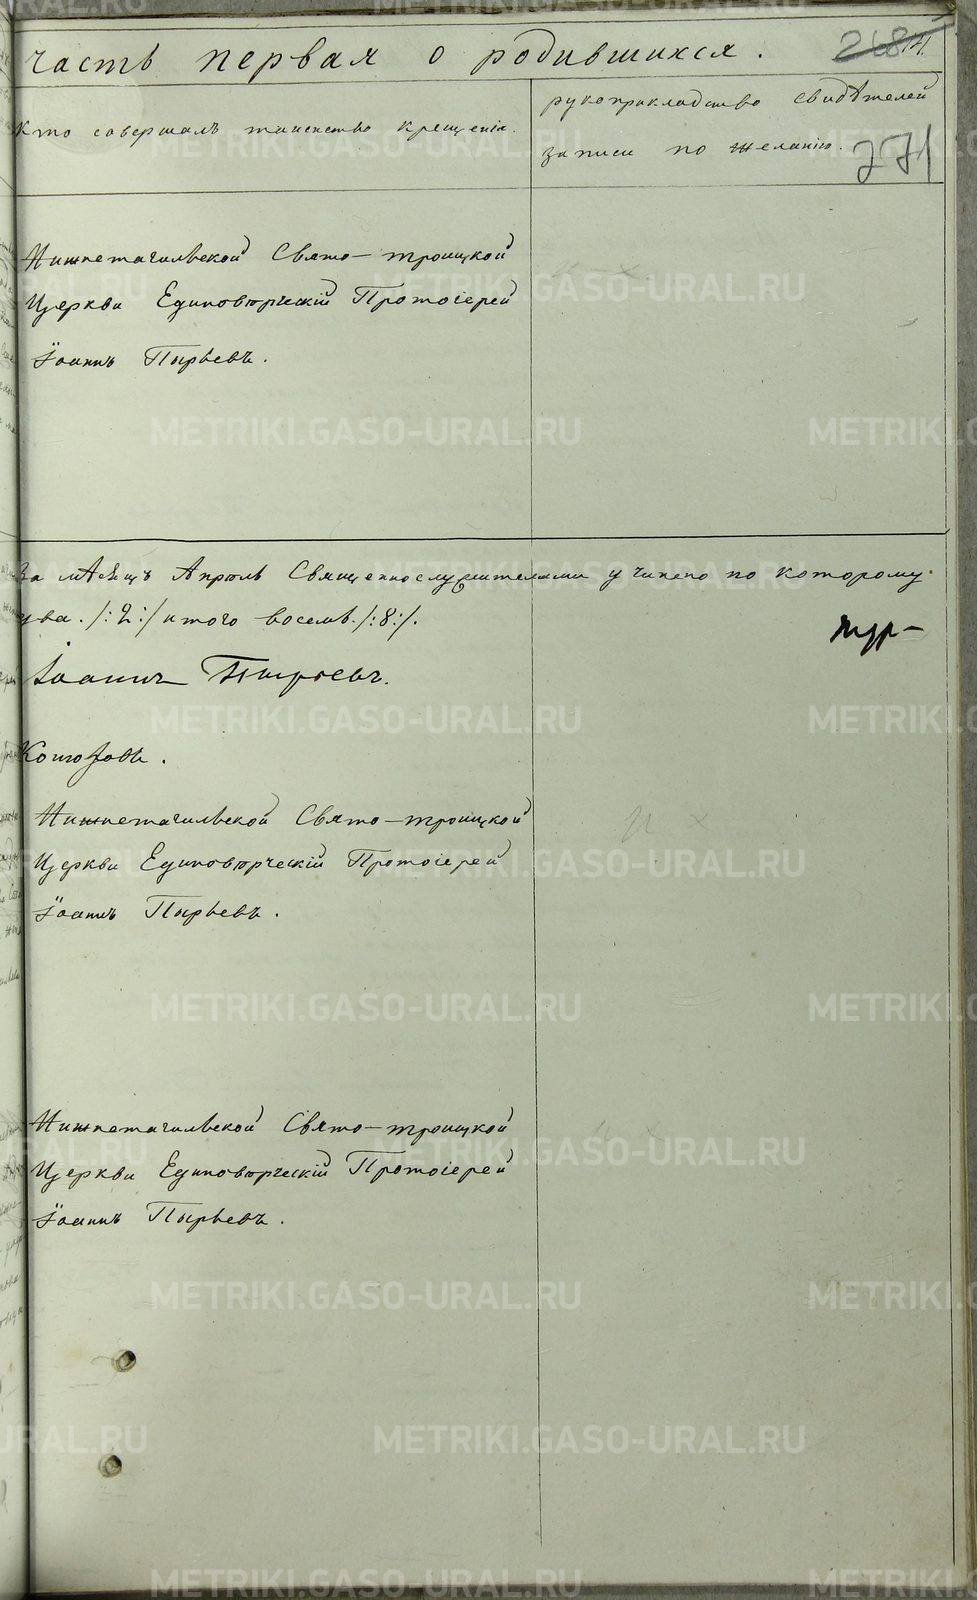 часть первая о родившихся.
268 14.
кто совершалъ таинство крещенія.
рукоприкладство свидѣтелей
записи по желанію.
271
Нижнетагильской Свято-троицкой
Церкви Единовѣрческій Протоіерей
Іоаннъ Пырьевъ.
За мѣсяцъ Апрѣль Священнослужителями учинено по которому
два ./:2:/ итого восемь ./:8:/.
Іоаннъ Пырьевъ.
Нижнетагильской Свято-троицкой
Церкви Единовѣрческій Протоіерей
Іоаннъ Пырьевъ.
Нижнетагильской Свято-троицкой
Церкви Единовѣрческій Протоіерей
Іоаннъ Пырьевъ.
METRIKI.GASO-URAL.RU